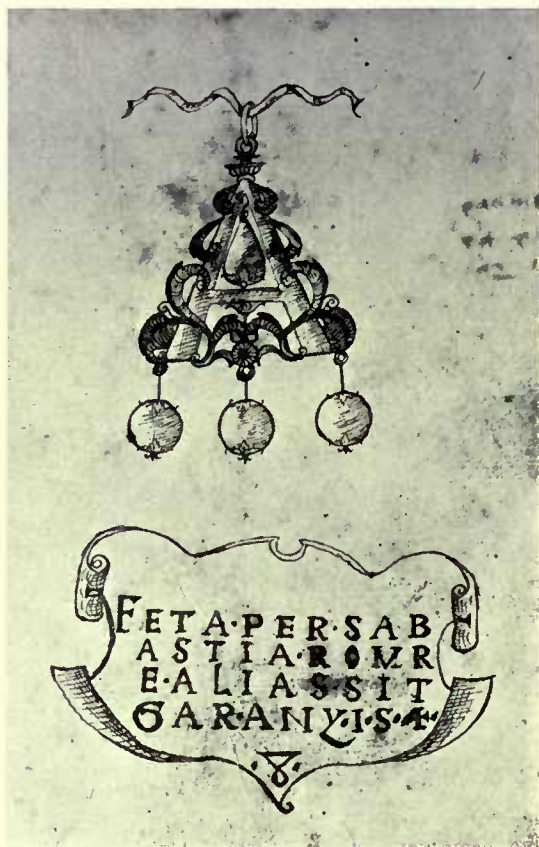 FETA·PER·SAB
ASTIA·ROMR
E·ALIAS·SIT
GAR·ANY·I·S·4·
·8·